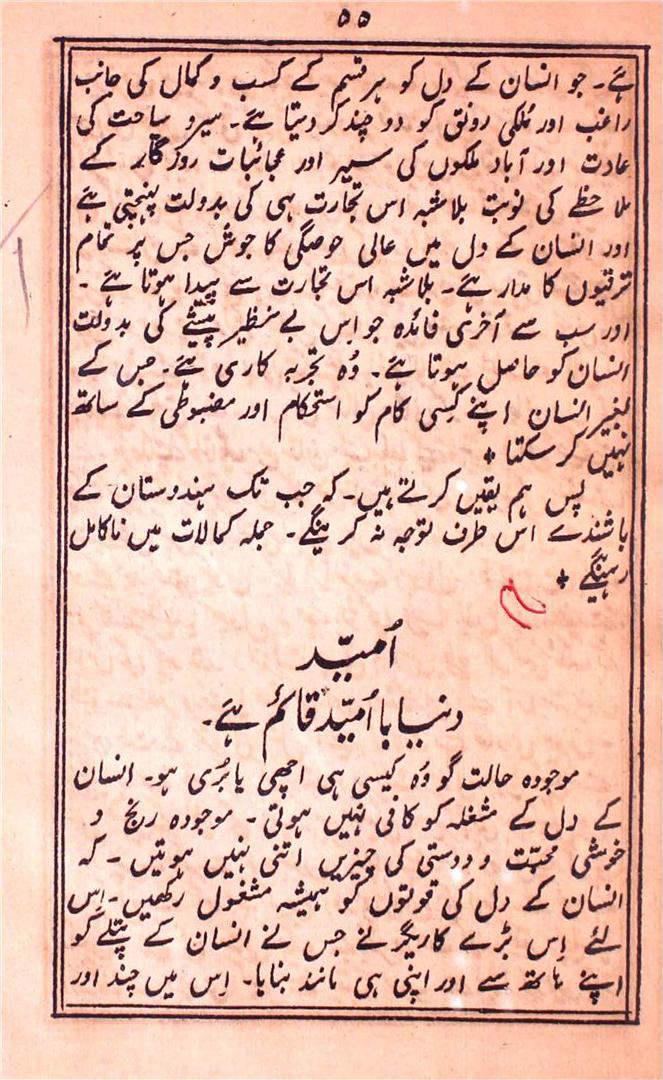 ۵۵
ہے۔ جو انسان کے دل کو ہر قسم کے کسب و کمال کی جانب
راغب اور مُلکی رونق کو دو چند کر دیتا ہے۔ سیر و سیاحت کی
عادت اور آباد ملکوں کی سیر اور عجائبات روزگار کے
ملاحظے کی نوبت بلا شبہ اس تجارت ہی کی بدولت پہنچتی ہے
اور انسان کے دل میں عالی حوصلگی کا جوش جس پر تمام
ترقیوں کا مدار ہے۔ بلا شبہ اس تجارت سے پیدا ہوتا ہے۔
اور سب سے آخری فائدہ جو اِس بے نظیر پیشے کی بدولت
انسان کو حاصل ہوتا ہے۔ وُہ تجربہ کاری ہے۔ جس کے
بغیر انسان اپنے کِسی کام کو استحکام اور مضبوطی کے ساتھ
نہیں کر سکتا +
پس ہم یقین کرتے ہیں۔ کہ جب تک ہندوستان کے
باشندے اس طرف توجہ نہ کرینگے۔ جملہ کمالات میں ناکامل
رہینگے +
اُمیّد
دنیا با اُمیّد قائم ہے۔
موجودہ حالت گو وُہ کیسی ہی اچھی یا بُری ہو۔ انسان
کے دل کے مشغلہ کو کافی نہیں ہوتی۔ موجودہ رنج و
خوشی محبّت و دوستی کی چیزیں اتنی نہیں ہوتیں۔ کہ
انسان کے دل کی قوتوں کو ہمیشہ مشغول رکھیں۔ اِس
لئے اِس بڑے کاریگر نے جس نے انسان کے پتلے کو
اپنے ہاتھ سے اور اپنی ہی مانند بنایا۔ اِس میں چند اور